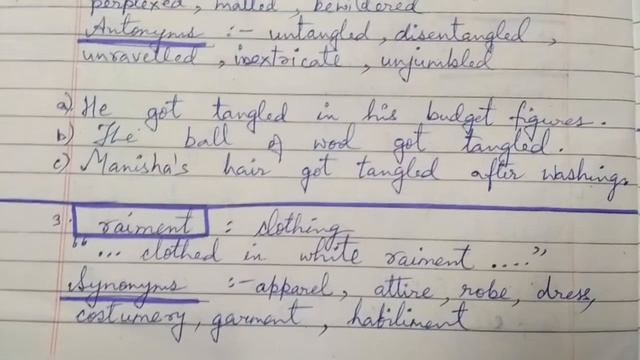 perplexed, matted, bewildered
Antonyms :- untangled, disentangled,
unravelled, inextricate, unjumbled
a) He got tangled in his budget figures.
b) The ball of wool got tangled.
c) Manisha's hair got tangled after washing.
3. raiment : clothing
"... clothed in white raiment ...."
Synonyms :- apparel, attire, robe, dress,
costumery, garment, habiliment